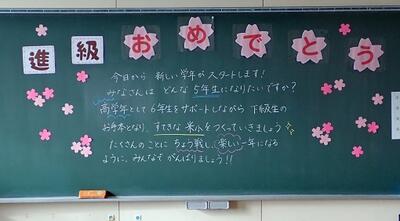 進級おめでとう
今日から 新しい学年がスタートします！
みなさんは どんな 5年生になりたいですか？
高学年として6年生をサポートしながら 下級生の
お手本となり、すてきな 米小をつくっていきましょう
たくさんのことに ちょう戦し、楽しい一年になる
ように、みんなで がんばりましょう！！